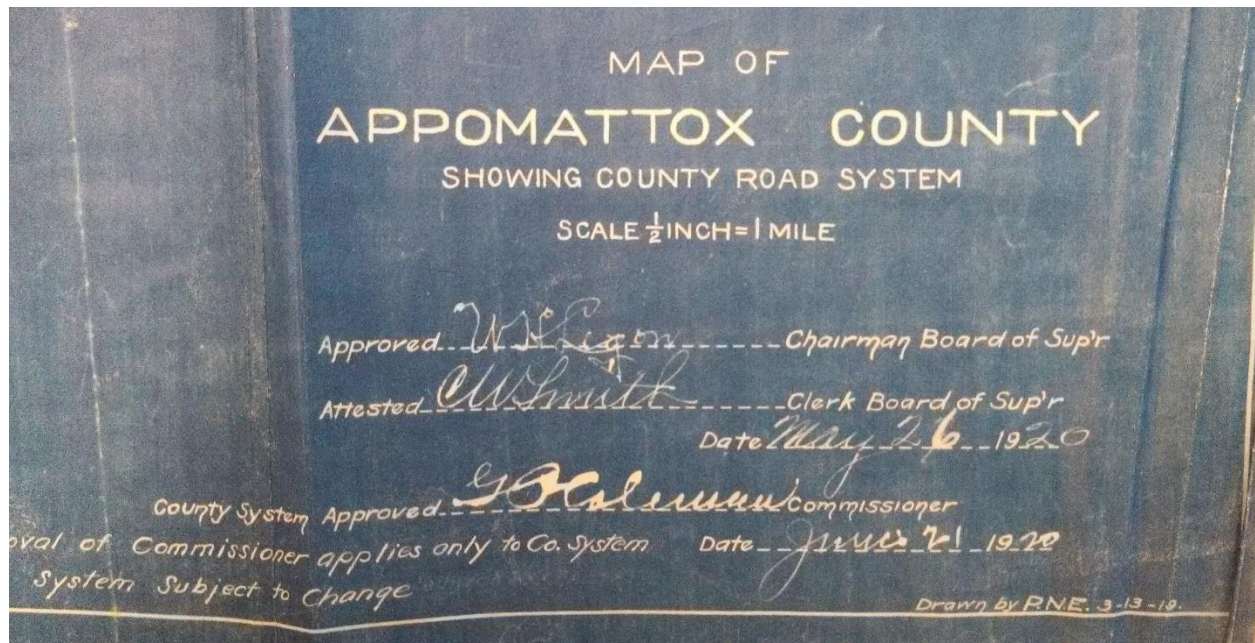 MAP OF
APPOMATTOX COUNTY
SHOWING COUNTY ROAD SYSTEM
SCALE ½ INCH = 1 MILE
Approved Chairman Board of Sup'r
Attested CW Smith Clerk Board of Sup'r
Date May 26 1920
County System Approved G P Coleman Commissioner
oval of Commissioner applies only to Co. System Date June 21 1920
System Subject to Change
Drawn by P.N.E. 3-13-19.